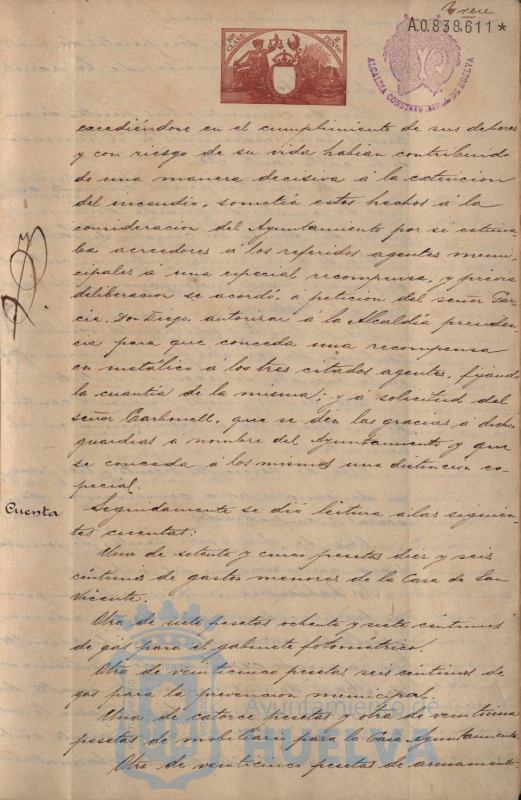 Trece
A.0.838.611*
10ª CLASE 2 PESETAS
ALCALDÍA CONSTITUCIONAL DE HUELVA
excediéndose en el cumplimiento de sus deberes
y con riesgo de su vida habian contribuido
de una manera decisiva á la extincion
del incendio, sometia estos hechos á la
consideracion del Ayuntamiento por si estima-
ba acreedores á los referidos agentes muni-
cipales á una especial recompensa, y previa
deliberacion se acordó, á peticion del señor Gar-
cia, Don Diego, autorizar á la Alcaldía presiden-
cia para que conceda una recompensa
en metálico á los tres citados agentes, fijando
la cuantia de la misma; y á solicitud del
señor Carbonell, que se den las gracias á dichos
guardias á nombre del Ayuntamiento y que
se conceda á los mismos una distincion es-
pecial.
Cuenta
Seguidamente se dió lectura á las siguien-
tes cuentas:
Una de setenta y cinco pesetas diez y seis
céntimos de gastos menores de la Casa de San
Vicente.
Otra de siete pesetas ochenta y siete céntimos
de gás para el gabinete fotométrico.
Otra de veinticinco pesetas seis céntimos de
gas para la prevencion municipal.
Una de catorce pesetas y otra de veintiuna
pesetas de mobiliario para la Casa ayuntamiento.
Otra de veinticinco pesetas de armamento
Ayuntamiento de
HUELVA